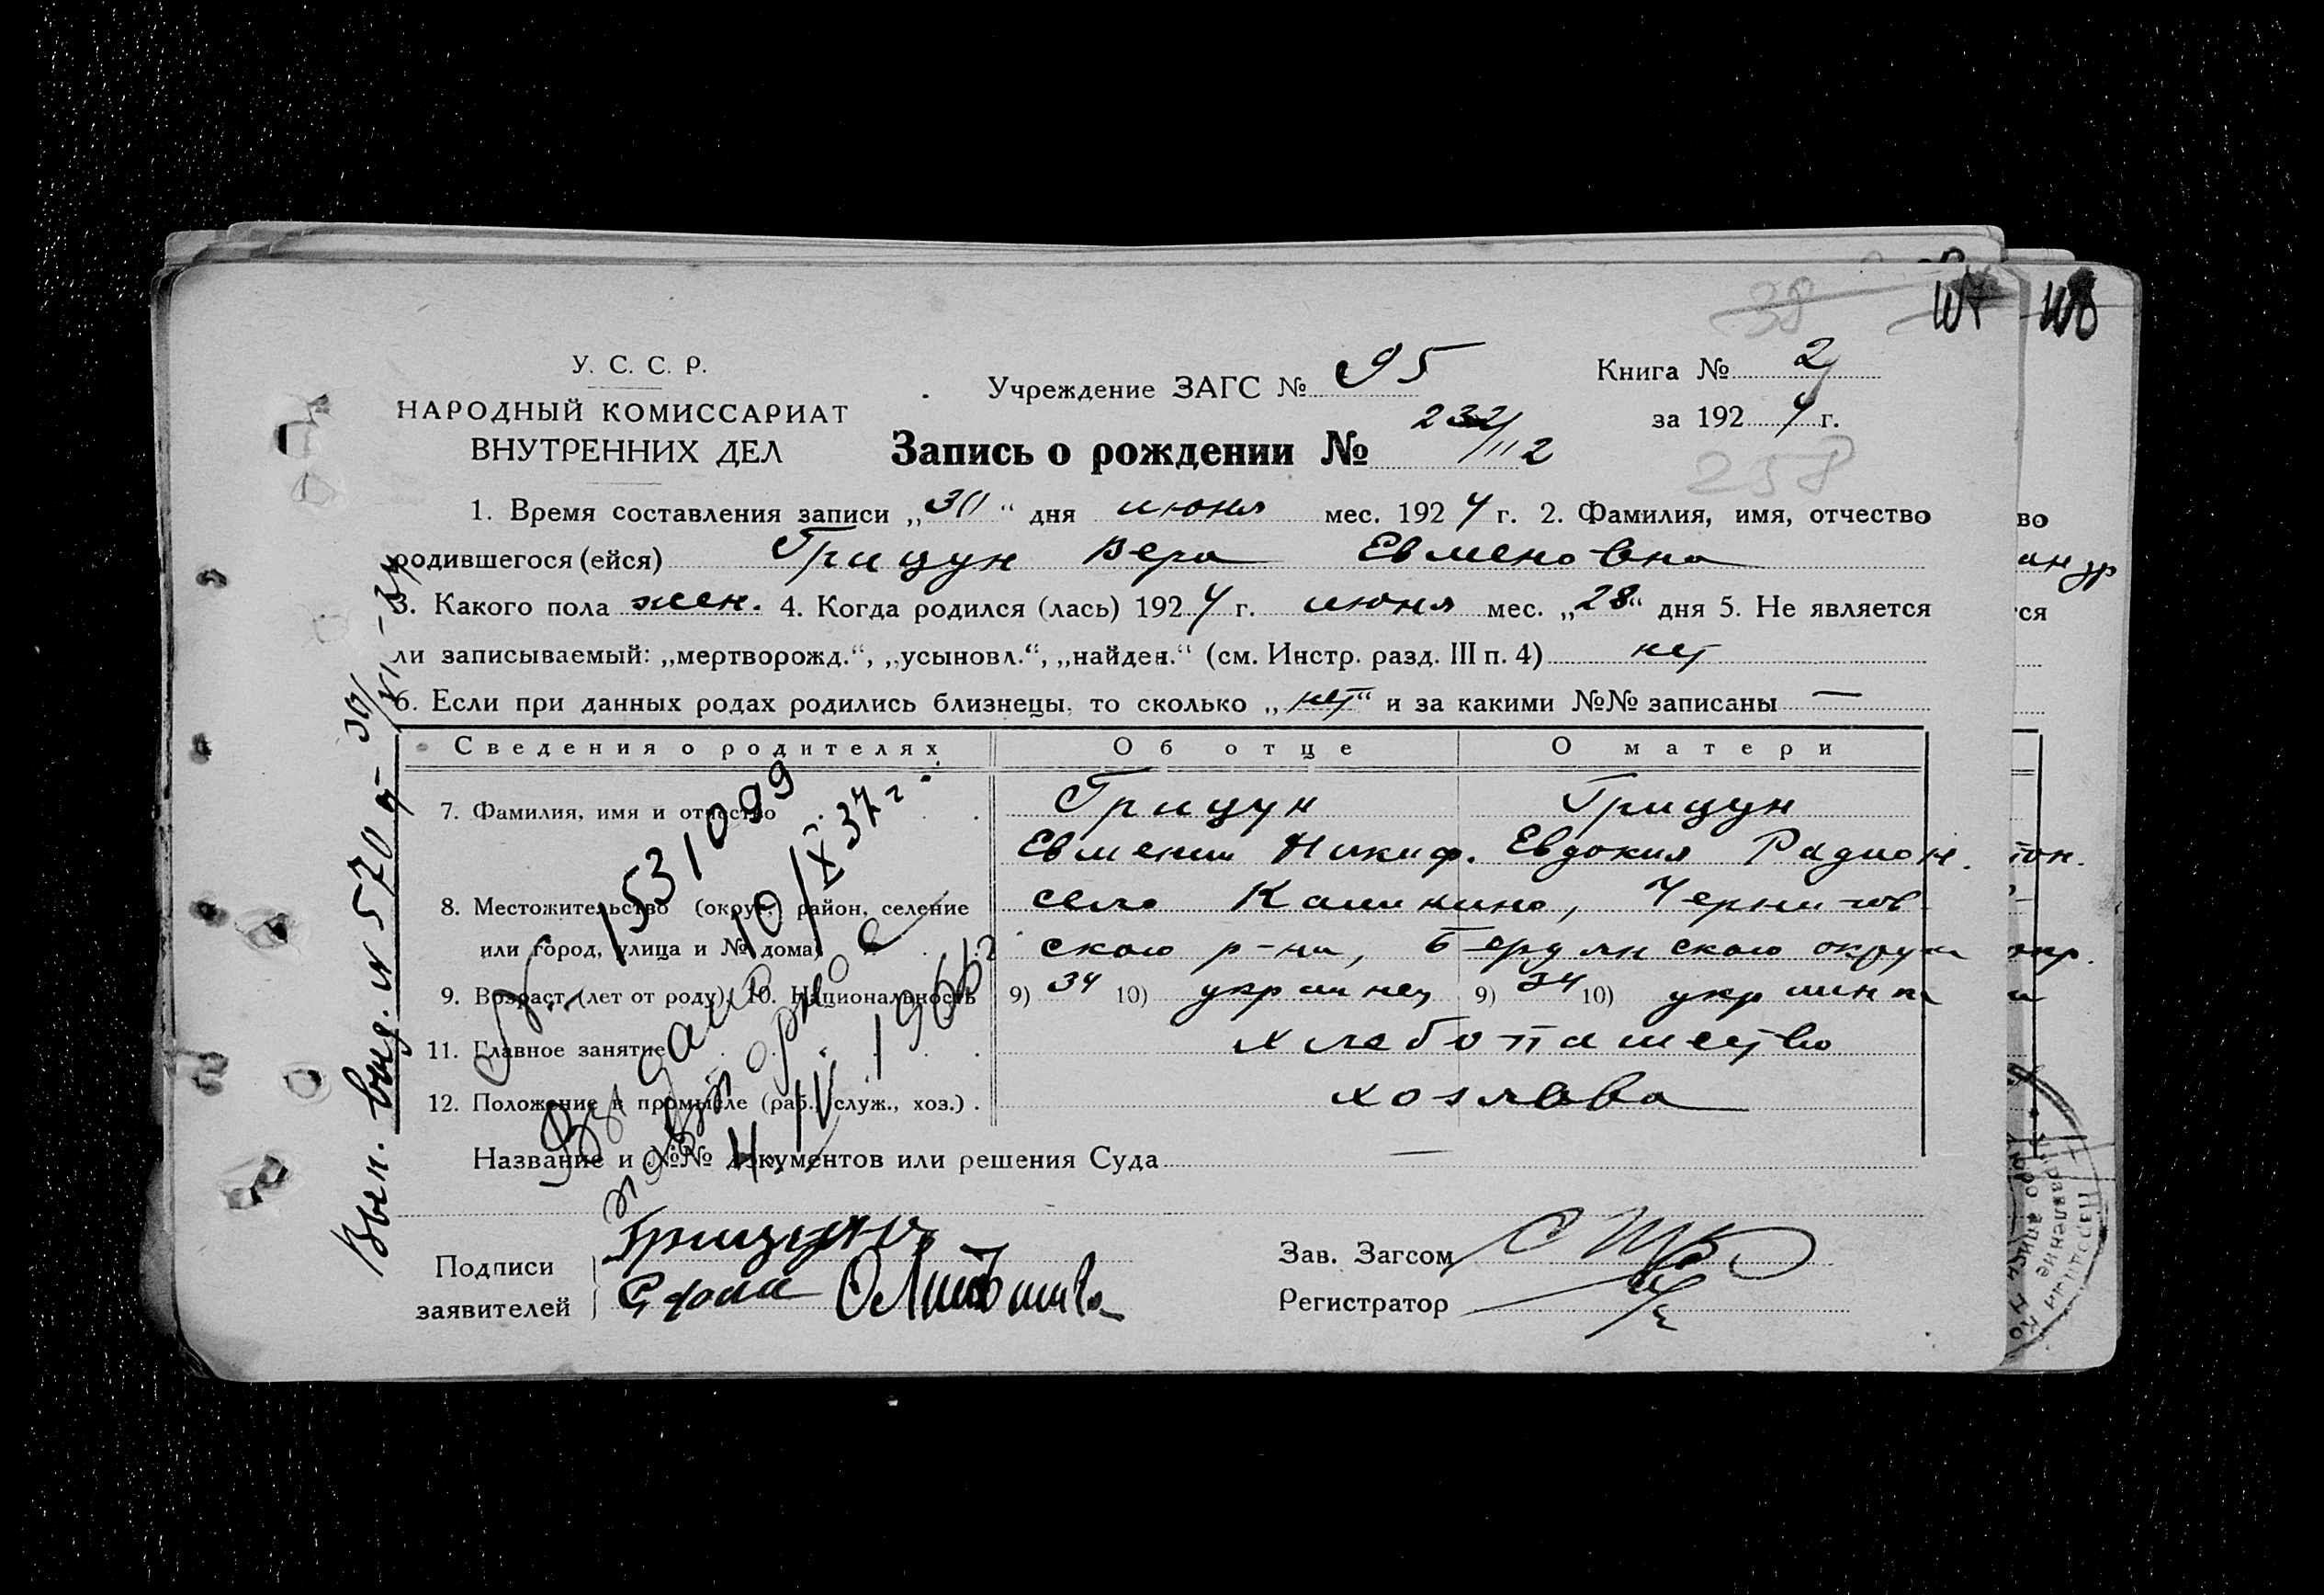 38
У. С. С. Р.
НАРОДНЫЙ КОМИССАРИАТ
ВНУТРЕННИХ ДЕЛ
Учреждение ЗАГС № 95
Книга № 2
за 192 4 г.
Запись о рождении № 232/112
258
1. Время составления записи „30“ дня июня мес. 192 4 г. 2. Фамилия, имя, отчество
родившегося (ейся) Грицун Вера Евменовна
3. Какого пола жен. 4. Когда родился (лась) 192 4 г. июня мес. „28“ дня 5. Не является
ли записываемый: „мертворожд.“, „усыновл.“, „найден.“ (см. Инстр. разд. III п. 4) нет
6. Если при данных родах родились близнецы, то сколько „нет“ и за какими №№ записаны —
Сведения о родителях Об отце О матери
7. Фамилия, имя и отчество Грицун Грицун
Евмений Никиф. Евдокия Радион.
8. Местожительство (округ, район, селение село Калинино, Чернигов
или город, улица и № дома) ского р-на, Бердянского округа
9. Возраст (лет от роду) 10. Национальность 9) 34 10) украинец 9) 34 10) украинка
11. Главное занятие хлебопашество
12. Положение в промысле (раб., служ., хоз.) хозяева
Название и №№ документов или решения Суда —
Подписи
заявителей
Грицун
Зав. Загсом
Регистратор
Вып. выд. № 570
1531099
10/IX 37 г.
Выдано
повторное
4/IV 1966 г